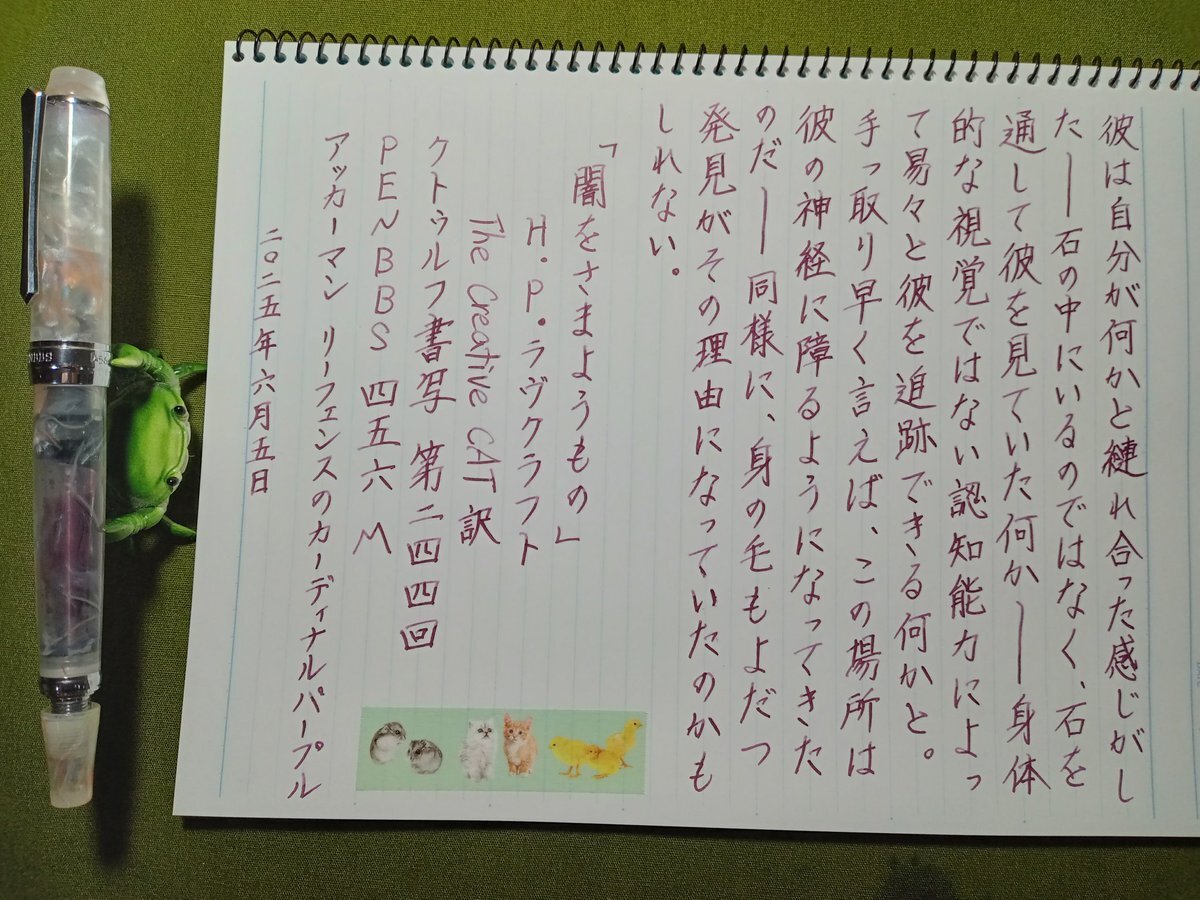 彼は自分が何かと縺れ合った感じがし
た――石の中にいるのではなく、石を
通して彼を見ていた何か――身体
的な視覚ではない認知能力によっ
て易々と彼を追跡できる何かと。
手っ取り早く言えば、この場所は
彼の神経に障るようになってきた
のだ――同様に、身の毛もよだつ
発見がその理由になっていたのかも
しれない。
「闇をさまようもの」
H・P・ラヴクラフト
The Creative CAT 訳
クトゥルフ書写 第二四四回
PENBBS 四五六 M
アッカーマン リーフェンスのカーディナルパープル
二〇二五年六月五日